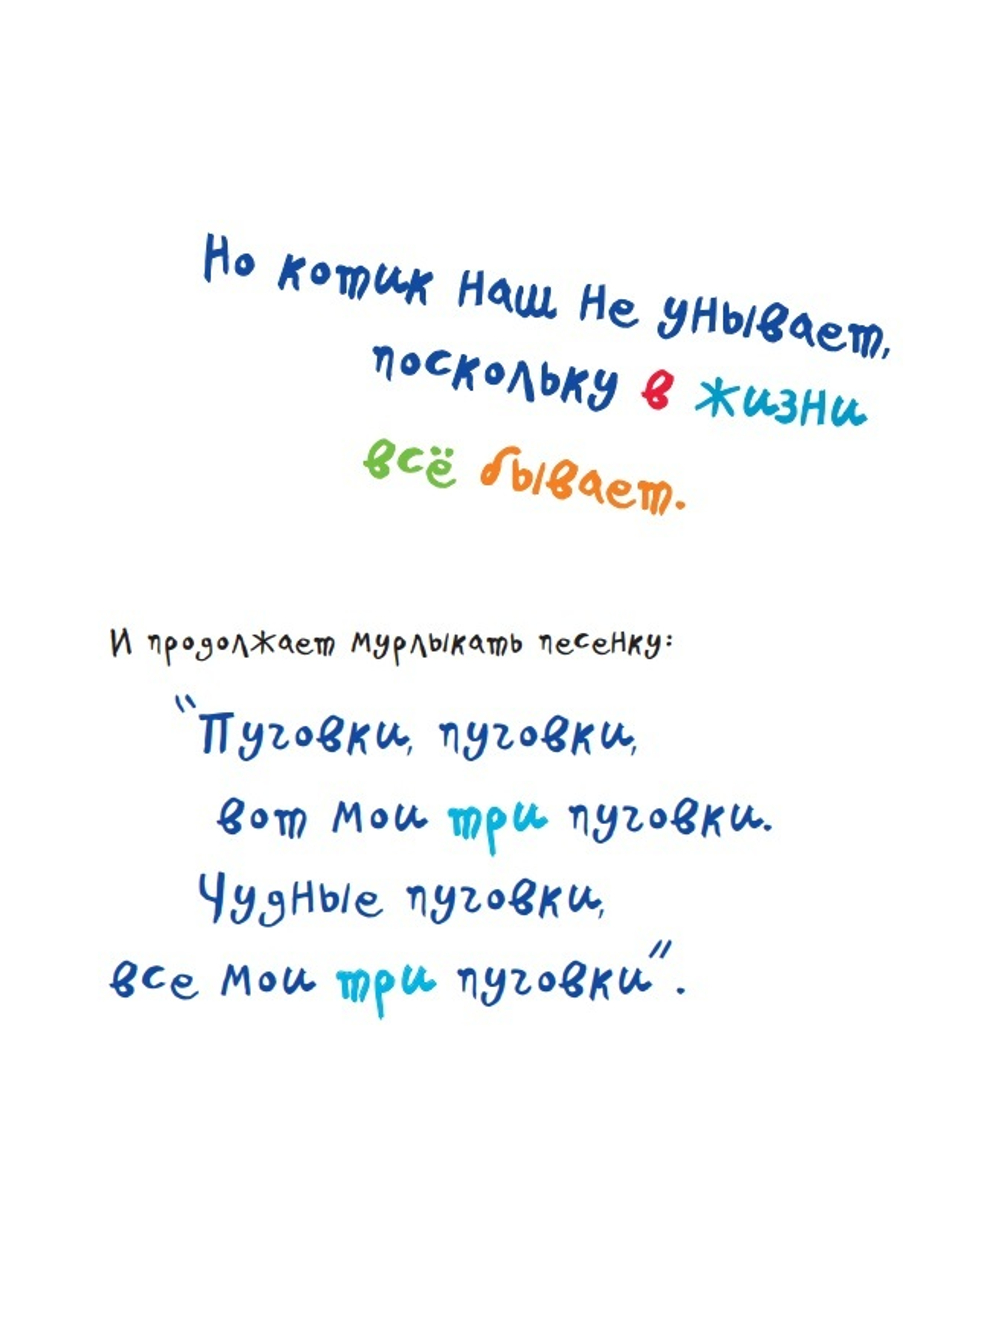 Но котик наш не унывает,
поскольку в жизни
всё бывает.
И продолжает мурлыкать песенку:
“Пуговки, пуговки,
вот мои три пуговки.
Чудные пуговки,
все мои три пуговки”.